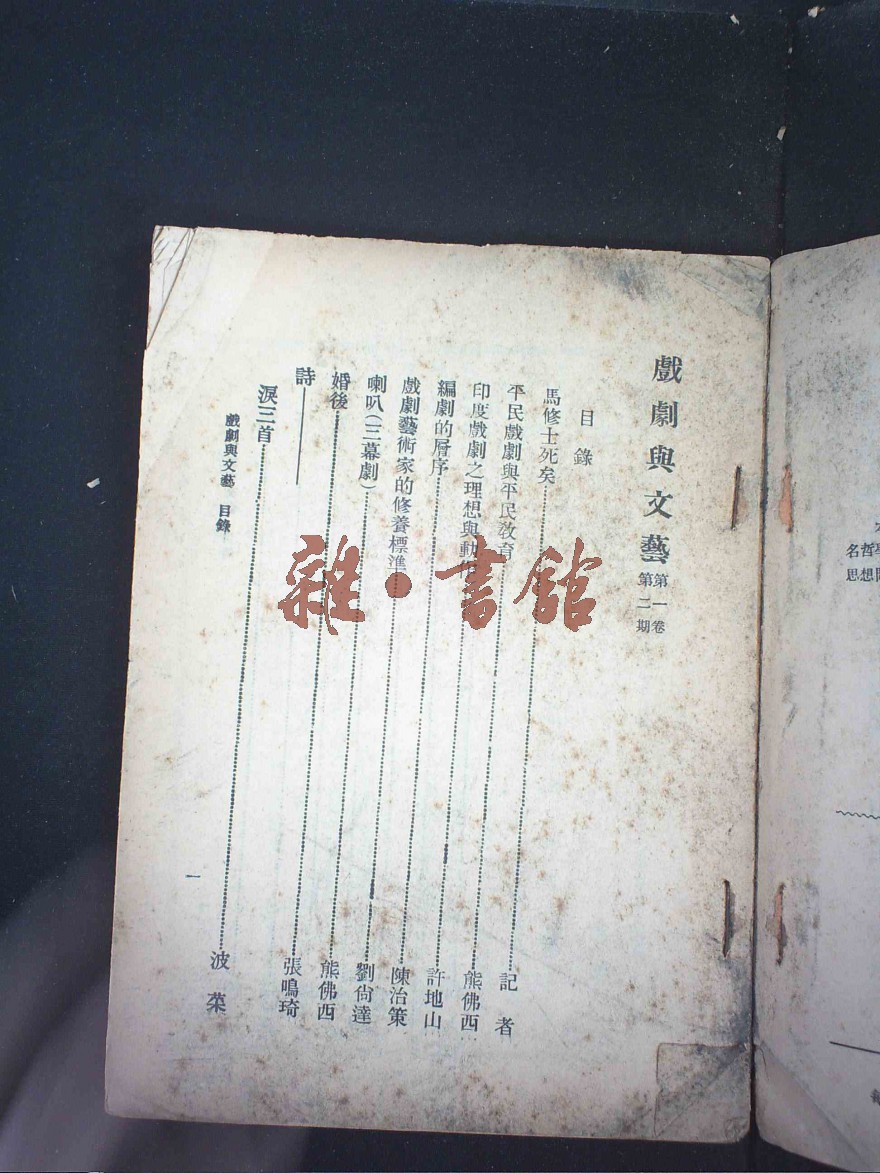 戲劇與文藝
第一卷
第二期
目錄
馬修士死矣 記者
平民戲劇與平民教育 熊佛西
印度戲劇之理想與動 許地山
編劇的層序 陳治策
戲劇藝術家的修養標準 劉尙達
喇叭(三幕劇) 熊佛西
婚後 張鳴琦
詩
淚三首 波葉
戲劇與文藝 目錄
一
雜·書館
名哲
思想